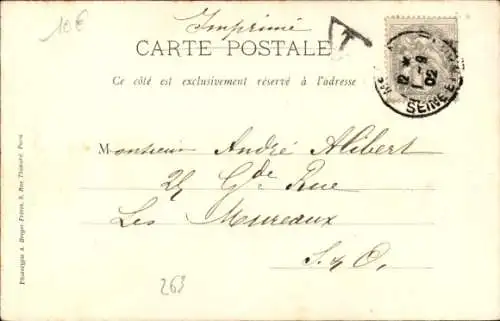 10€
Imprimé
CARTE POSTALE
T
Ce côté est exclusivement réservé à l'adresse
12 *
1-9
02
SEINE ET
Monsieur André Alibert
25 Gde Rue
Les Mureaux
S. & O.
263
Phototypie A. Breger Frères, 9, Rue Thénard, Paris